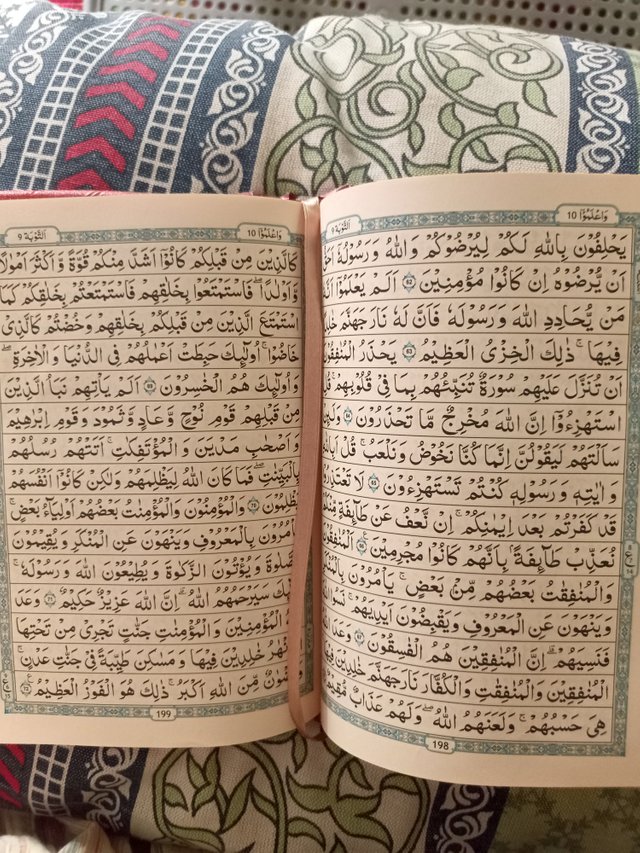 وَاعْلَمُوْٓا 10
اَلتَّوْبَة 9
يَحْلِفُوْنَ بِاللّٰهِ لَكُمْ لِيُرْضُوْكُمْ وَاللّٰهُ وَرَسُوْلُهٗٓ
اَنْ يُّرْضُوْهُ اِنْ كَانُوْا مُؤْمِنِيْنَ 62 اَلَمْ يَعْلَمُوْٓا
مَنْ يُّحَادِدِ اللّٰهَ وَرَسُوْلَهٗ فَاَنَّ لَهٗ نَارَ جَهَنَّمَ
فِيْهَا ۚ ذٰلِكَ الْخِزْىُ الْعَظِيْمُ 63 يَحْذَرُ الْمُنٰفِقُوْنَ
اَنْ تُنَزَّلَ عَلَيْهِمْ سُوْرَةٌ تُنَبِّئُهُمْ بِمَا فِىْ قُلُوْبِهِمْ ۚ قُلِ
اسْتَهْزِءُوْا اِنَّ اللّٰهَ مُخْرِجٌ مَّا تَحْذَرُوْنَ 64 وَلَئِنْ
سَاَلْتَهُمْ لَيَقُوْلُنَّ اِنَّمَا كُنَّا نَخُوْضُ وَنَلْعَبُ ۚ قُلْ اَبِاللّٰهِ
وَاٰيٰتِهٖ وَرَسُوْلِهٖ كُنْتُمْ تَسْتَهْزِءُوْنَ 65 لَا تَعْتَذِرُوْا
قَدْ كَفَرْتُمْ بَعْدَ اِيْمٰنِكُمْ ۚ اِنْ نَّعْفُ عَنْ طَآئِفَةٍ مِّنْكُمْ
نُعَذِّبْ طَآئِفَةًۢ بِاَنَّهُمْ كَانُوْا مُجْرِمِيْنَ 66 اَلْمُنٰفِقُوْنَ
وَالْمُنٰفِقٰتُ بَعْضُهُمْ مِّنْ بَعْضٍ ۘ يَاْمُرُوْنَ بِالْمُنْكَرِ
وَيَنْهَوْنَ عَنِ الْمَعْرُوْفِ وَيَقْبِضُوْنَ اَيْدِيَهُمْ ۚ نَسُوا اللّٰهَ
فَنَسِيَهُمْ ۗ اِنَّ الْمُنٰفِقِيْنَ هُمُ الْفٰسِقُوْنَ 67 وَعَدَ اللّٰهُ
الْمُنٰفِقِيْنَ وَالْمُنٰفِقٰتِ وَالْكُفَّارَ نَارَ جَهَنَّمَ خٰلِدِيْنَ فِيْهَا
هِىَ حَسْبُهُمْ ۚ وَلَعَنَهُمُ اللّٰهُ ۖ وَلَهُمْ عَذَابٌ مُّقِيْمٌ
198
وَاعْلَمُوْٓا 10
اَلتَّوْبَة 9
كَالَّذِيْنَ مِنْ قَبْلِكُمْ كَانُوْٓا اَشَدَّ مِنْكُمْ قُوَّةً وَّاَكْثَرَ اَمْوٰلًا
وَّاَوْلٰدًا ۗ فَاسْتَمْتَعُوْا بِخَلٰقِهِمْ فَاسْتَمْتَعْتُمْ بِخَلٰقِكُمْ كَمَا
اسْتَمْتَعَ الَّذِيْنَ مِنْ قَبْلِكُمْ بِخَلٰقِهِمْ وَخُضْتُمْ كَالَّذِىْ
خَاضُوْا ۚ اُولٰٓئِكَ حَبِطَتْ اَعْمٰلُهُمْ فِى الدُّنْيَا وَالْاٰخِرَةِ ۖ
وَاُولٰٓئِكَ هُمُ الْخٰسِرُوْنَ 69 اَلَمْ يَاْتِهِمْ نَبَاُ الَّذِيْنَ
مِنْ قَبْلِهِمْ قَوْمِ نُوْحٍ وَّعَادٍ وَّثَمُوْدَ وَقَوْمِ اِبْرٰهِيْمَ
وَاَصْحٰبِ مَدْيَنَ وَالْمُؤْتَفِكٰتِ ۚ اَتَتْهُمْ رُسُلُهُمْ
بِالْبَيِّنٰتِ ۖ فَمَا كَانَ اللّٰهُ لِيَظْلِمَهُمْ وَلٰكِنْ كَانُوْٓا اَنْفُسَهُمْ
يَظْلِمُوْنَ 70 وَالْمُؤْمِنُوْنَ وَالْمُؤْمِنٰتُ بَعْضُهُمْ اَوْلِيَآءُ بَعْضٍ ۘ
يَاْمُرُوْنَ بِالْمَعْرُوْفِ وَيَنْهَوْنَ عَنِ الْمُنْكَرِ وَيُقِيْمُوْنَ
الصَّلٰوةَ وَيُؤْتُوْنَ الزَّكٰوةَ وَيُطِيْعُوْنَ اللّٰهَ وَرَسُوْلَهٗ ۚ
سَيَرْحَمُهُمُ اللّٰهُ ۗ اِنَّ اللّٰهَ عَزِيْزٌ حَكِيْمٌ 71 وَعَدَ
الْمُؤْمِنِيْنَ وَالْمُؤْمِنٰتِ جَنّٰتٍ تَجْرِىْ مِنْ تَحْتِهَا
الْاَنْهٰرُ خٰلِدِيْنَ فِيْهَا وَمَسٰكِنَ طَيِّبَةً فِىْ جَنّٰتِ عَدْنٍ ۚ
وَرِضْوٰنٌ مِّنَ اللّٰهِ اَكْبَرُ ۚ ذٰلِكَ هُوَ الْفَوْزُ الْعَظِيْمُ 72
199